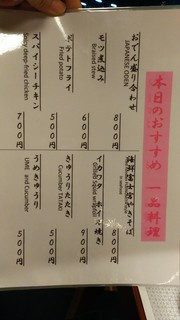 本日のおすすめ 一品料理
おでん盛り合わせ
JAPANESE ODEN
800円
モツ煮込み
Braised stew
600円
ポテトフライ
Fried potato
500円
スパイシーチキン
Spicy deep-fried chicken
700円
海鮮富士宮やきそば
800円
イカワタ ホイル焼き
Grilled squid wrapped
900円
きゅうりたたき
Cucumber TATAKI
500円
うめきゅうり
UME and Cucumber
500円